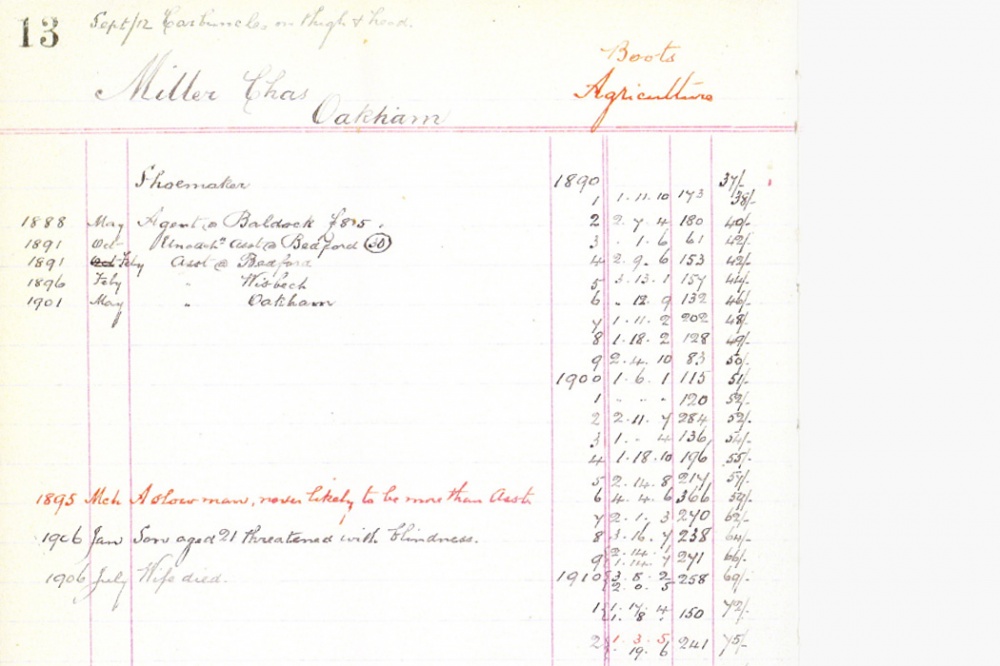 13 Sept/12 Carbuncles on thigh & head.
Boots
Miller Chas Agriculture
Oakham
Shoemaker 1890 37/-
1 1.11.10 173 38/-
1888 May Agent @ Baldock 2 2.7.4 180 40/-
1891 Oct Asst @ Bedford 30 3 .1.6 61 42/-
1891 Feby Asst @ Bedford 4 2.9.6 153 42/-
1896 Feby " Wisbech 5 3.13.1 157 44/-
1901 May " Oakham 6 ".12.9 132 46/-
7 1.11.2 202 48/-
8 1.18.2 128 49/-
9 2.4.10 83 50/-
1900 1.6.1 115 51/-
1 " " " 120 52/-
2 2.11.7 284 52/-
3 1.".4 136 54/-
4 1.18.10 196 55/-
5 2.14.8 217 57/-
1895 Mch A slow man, never likely to be more than Asst. 6 4.4.6 366 59/-
7 2.1.3 270 62/-
1906 Jan Son aged 21 threatened with blindness. 8 3.16.7 238 64/-
9 2.14.1 271 66/-
1906 July Wife died. 1910 3.8.2 258 69/-
2.0.5
1 1.17.4 150 72/-
1.8.
2 1.3.5 241 75/-
19.6